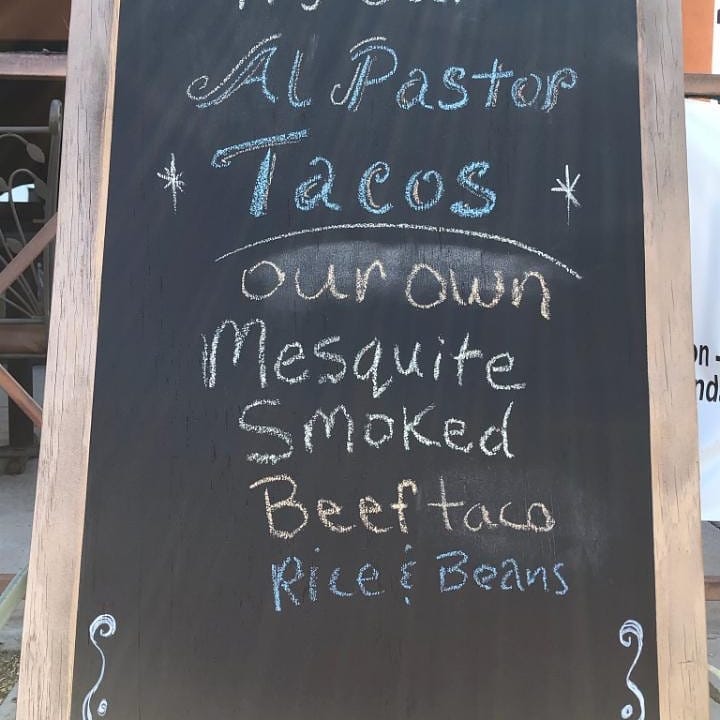 Try Our
Al Pastor
Tacos
our own
Mesquite
Smoked
Beef taco
Rice & Beans
on -
nd.